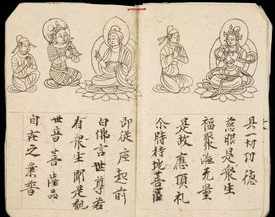 具一切功德
慈眼視衆生
福聚海無量
是故應頂礼
尒時持地菩薩
即從座起前
白佛言世尊若
有衆生聞是觀
世音菩薩品
自在之業普